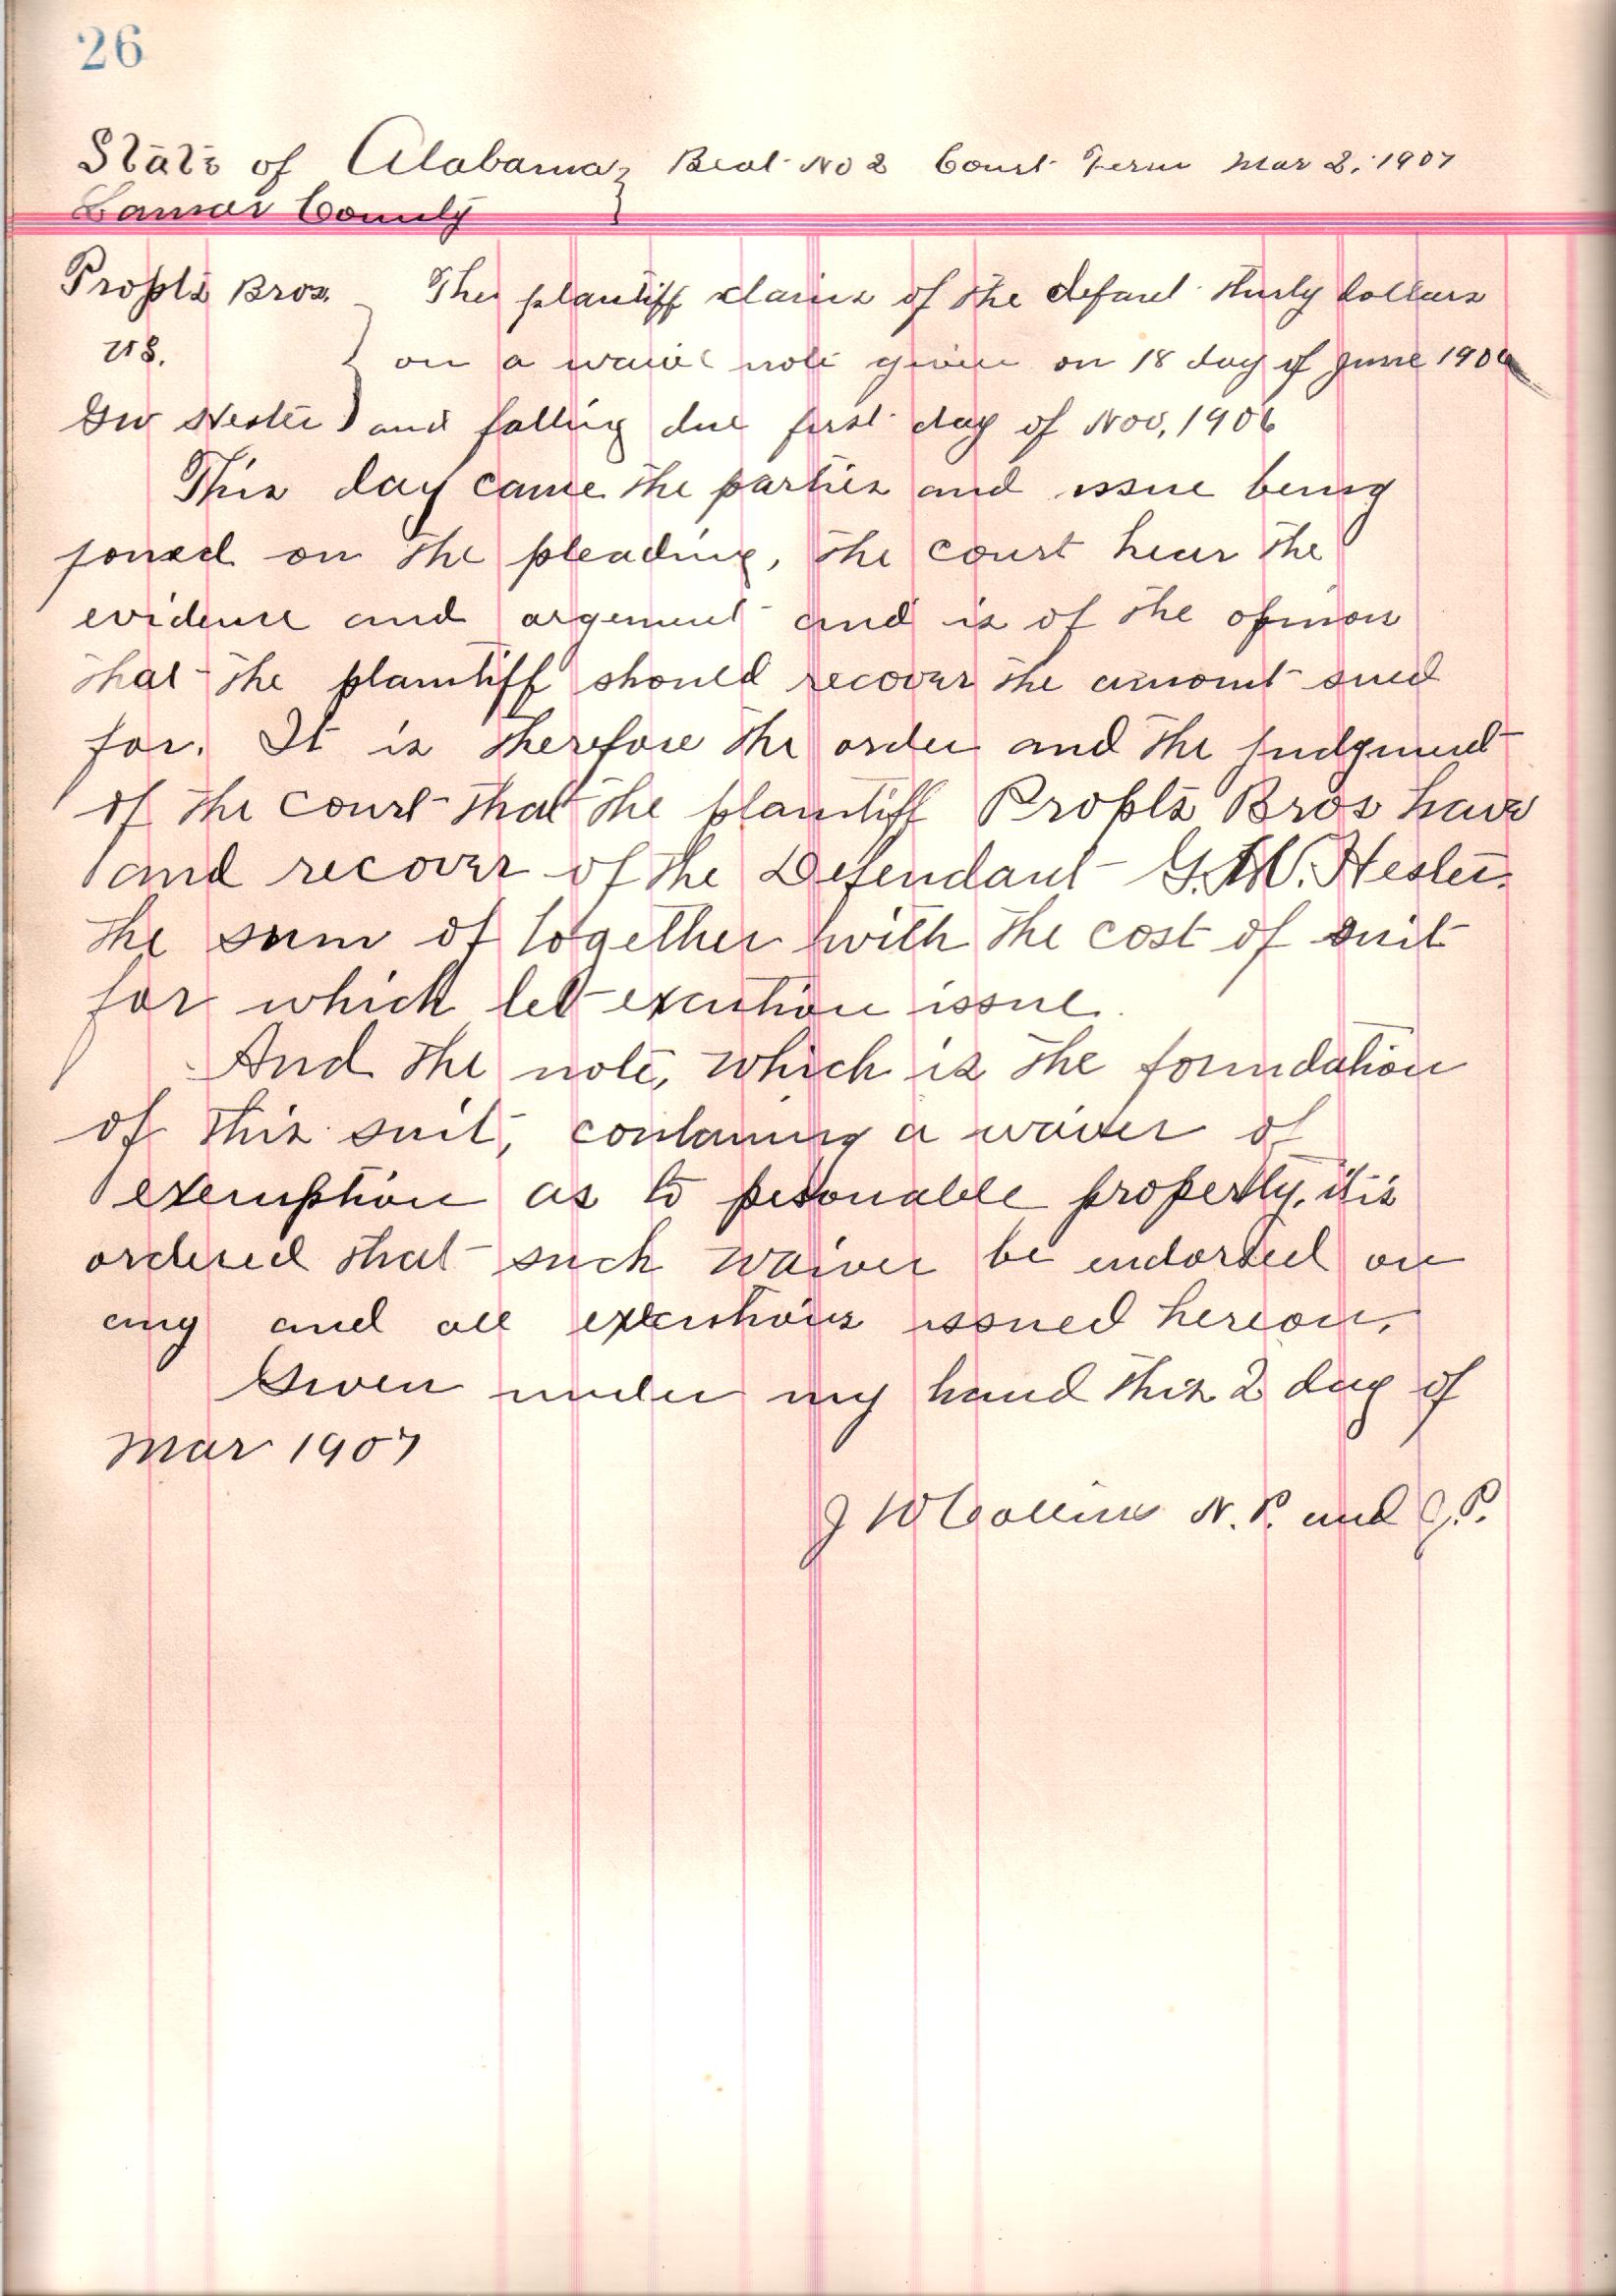 26
State of Alabama } Beat No 2 Court Term Mar 2, 1907
Lamar County
Propts Bros. The plantiff claims of the defant thirty dollars
vs. on a waive note given on 18 day of June 1906
GW Hester and falling due first day of Nov, 1906
This day came the parties and issue being
joned on the pleading, the court hear the
evidence and argement and is of the opinion
that the plaintiff should recover the amount sued
for. It is therefore the order and the judgment
of the court that the plantiff Propts Bros have
and recover of the Defendant G.W. Hester.
the sum of together with the cost of suit
for which let excution issue.
And the note, which is the foundation
of this suit, contaning a waiver of
exemption as to pesonable property, it is
ordered that such waiver be endorsed on
any and all excutions issued hereon.
Given under my hand this 2 day of
Mar 1907
J W Collins N.P. and J.P.